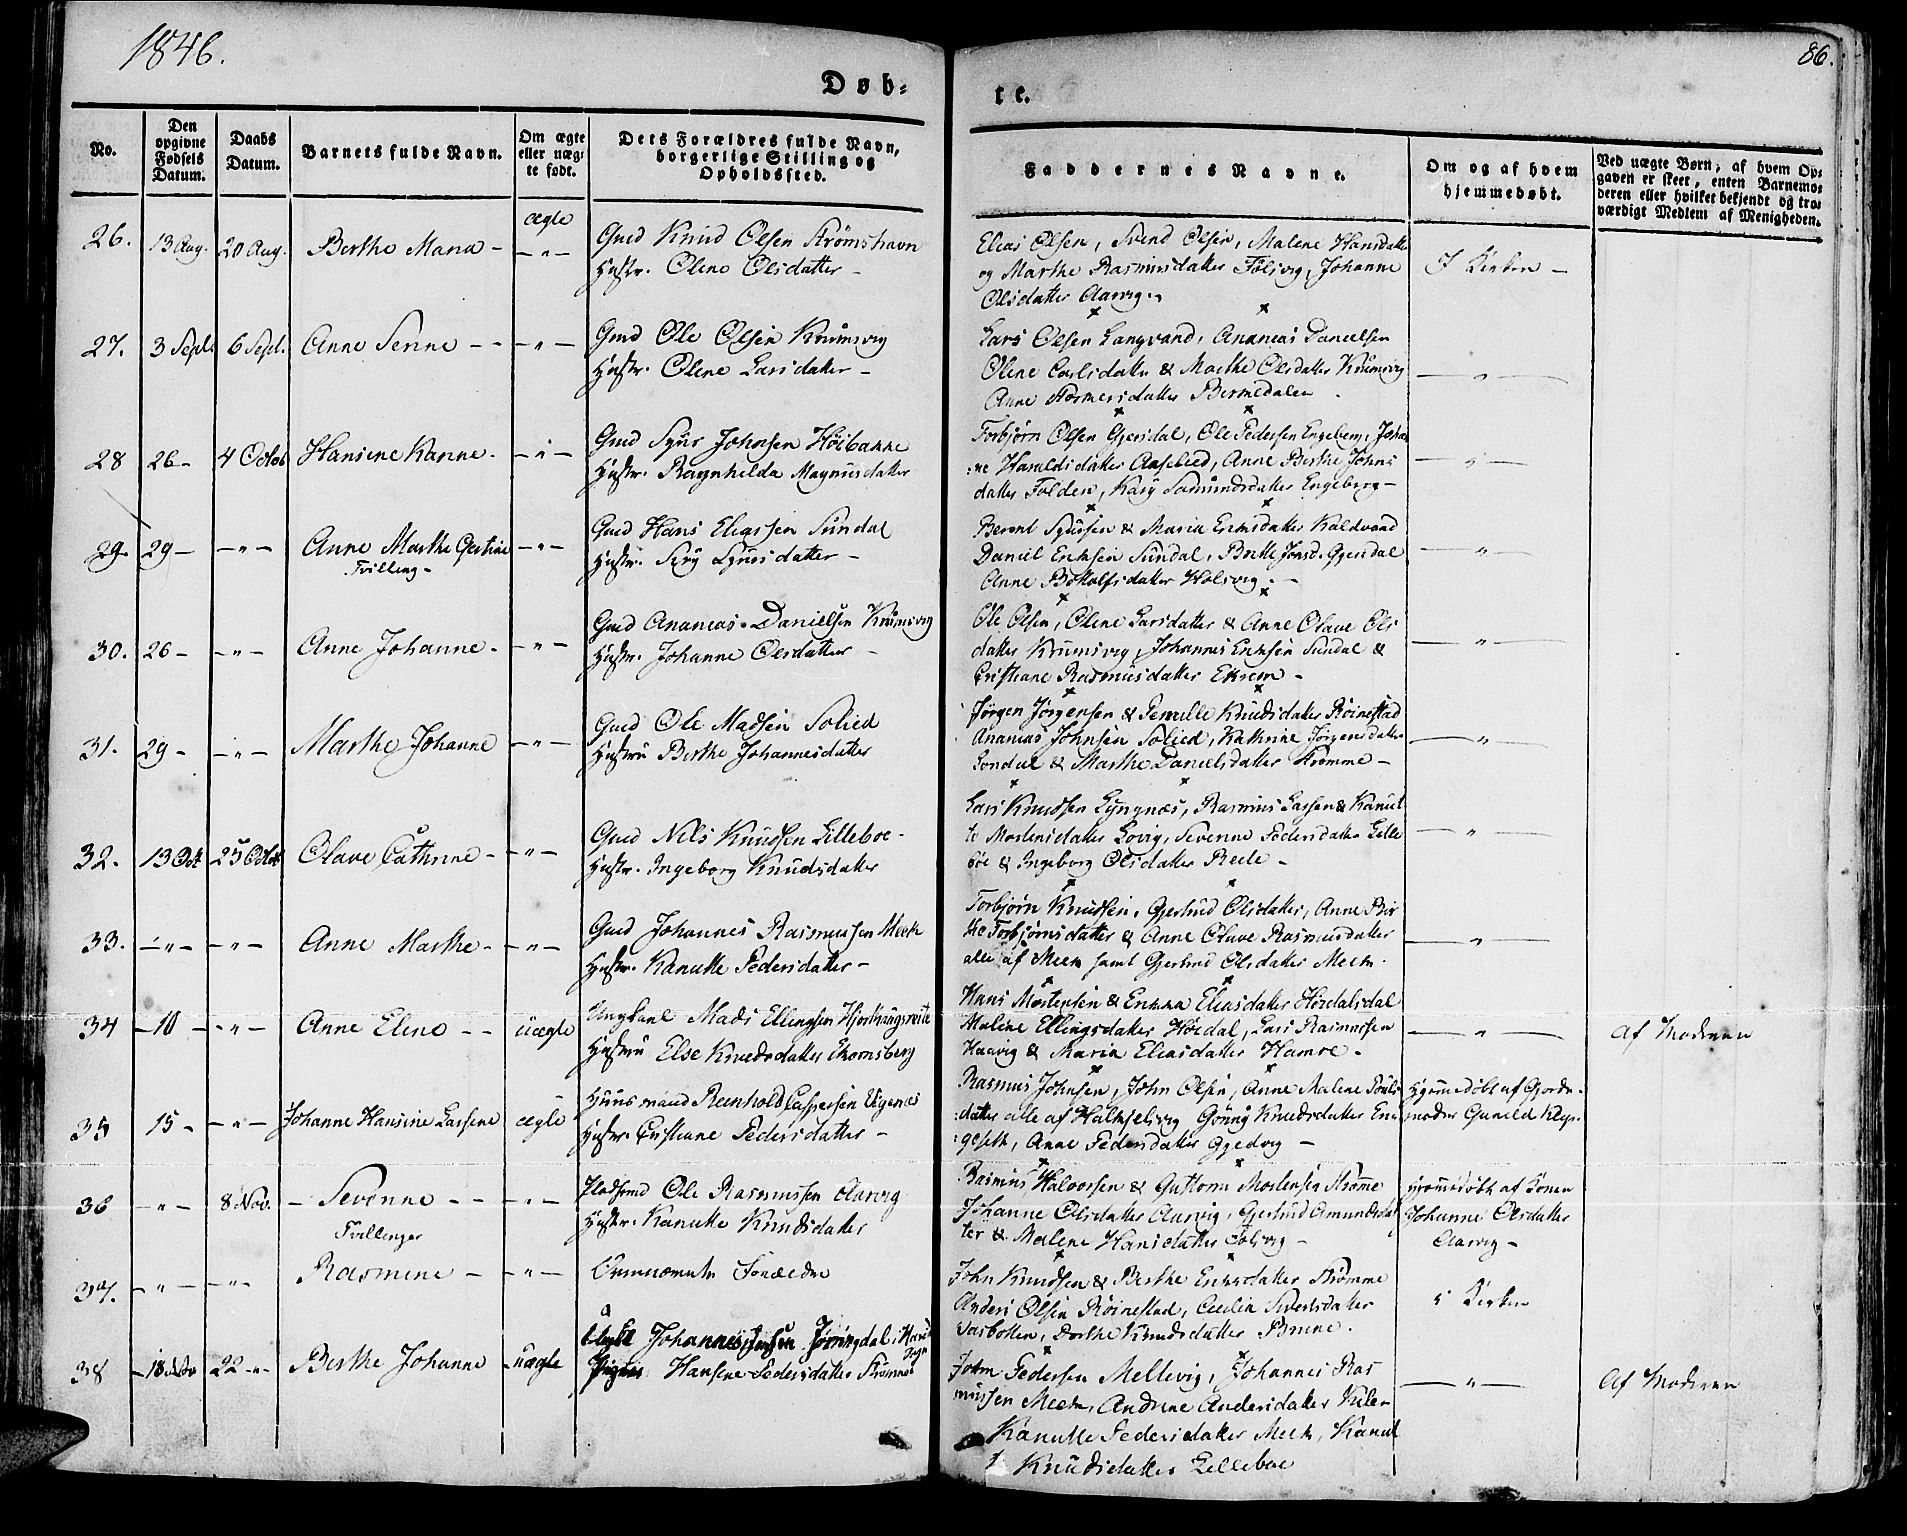 1846.
86.
Døb-
te.
No.
Den opgivne Fødsels Datum.
Daabs Datum.
Barnets fulde Navn.
Om ægte eller uægte født.
Dets Forældres fulde Navn, borgerlige Stilling og Opholdssted.
Faddernes Navne.
Om og af hvem hjemmedøbt.
Ved uægte Børn, af hvem Opgaven er skeet, enten Barnemoderen eller hvilket bekjendt og troværdigt Medlem af Menigheden.
26. 13 Aug. 20 Aug. Berthe Maria - ægte
Gmd Knud Olsen Strømshavn
Hustr. Olene Olsdatter -
Elias Olsen, Svend Olsen, Malene Hansdatter
og Marthe Rasmusdatter Følsvig, Johanne
Olsdatter Aarvig.
I Kirken -
27. 3 Sept. 6 Sept. Anne Senne - - - " -
Gmd Ole Olsen Krumsvig
Hustr. Olene Larsdatter -
Lars Olsen Langvand, Ananias Danielsen
Olene Carlsdatter & Marthe Olsdatter Krumsvig
Anne Datter
- " -
28 26 - 4 Octob Hansine Kanne -
Gmd Sjur Johnsen Höibakke
Hustr. Ragnhilda Magnusdatter
Torbjørn Olsen Gjersdal, Ole Pedersen Engeberg, Johan
:ne Haraldsdatter Aaselied, Anne Berthe Johns
datter Folden, Kary Engeberg -
29. 29 - - " - Anne Marthe Gjertine - " -
Tvilling -
Gmd Hans Eliassen Sundal
Hustr. Siry Sjursdatter -
Bernt Sjursen & Maria Eriksdatter Kaldvaad
Daniel Eriksen Sundal, Berthe Jonsd. Gjersdal
Anne Holsvig. -
- " -
30. 26 - - " - Anne Johanne - - " -
Gmd Ananias Danielsen Krumsvig
Hustr. Johanne Olsdatter -
Ole Olsen, Olene Larsdatter & Anne Olave Ols
datter Krumsvig, Johannes Eriksen Sundal &
Cristiane Rasmusdatter Ekrem -
- " -
31. 29 - - " - Marthe Johanne - " -
Gmd Ole Madsen Solied
Hustru Berthe Johannesdatter
Jørgen Jörgensen & Pernille Knudsdatter Røinestad
Ananias Johnsen Solied, Kathrine Jörgensdatter
Sondal & Marthe Danielsdatter Strømme -
- " -
32. 13 Oct 25 Octob Olave Cathrine - - " -
Gmd Nils Knudsen Lilleboe -
Hustr. Ingeborg Knudsdatter
Lars Knudsen Lyngnæs, Rasmus Lassen & Kanut
te Mortensdatter Lovig, Sevenne Pedersdatter Lille
böe & Ingeborg Olsdatter Reite -
- " -
33. - " - - " - Anne Marthe - - " -
Gmd Johannes Rasmussen Meek
Hustr. Kanutte Pedersdatter -
Torbjørn Knudsen, Gjertrud Olsdatter, Anne Ber
the Torbjørnsdatter & Anne Olave Rasmusdatter
alle af Meek samt Gjertrud Olsdatter Meek.
- " -
34 - 10 - - " - Anne Eline - - uægte
Ungkarl Mads Ellingsen
Hustru Else Knudsdatter
Hans Mortensen & Erikka Eliasdatter Hordalsdal
Maline Ellingsdatter Høidal, Lars Rasmussen
Haavig & Maria Eliasdatter Hamre -
- " -
Af Moderen
35 15 - - " - Johanne Hansine Lassene ægte
Huusmand Reinhold Caspersen Vigenæs
Hustr. Cristiane Pedersdatter -
Rasmus Johnsen, John Olsen, Anne Malene Pouls
:datter alle af Knudsdatter En
:geseth, Anne Pedersdatter Gjedvig -
Hjemmedøbt af Gjorde-
moder Gunild Klep.
36 - " - 8 Nov. - Sevenne - - - " -
Tvillinger
Pladsmd Ole Rasmussen Aarvig
Hustr. Kanutte Knudsdatter
Rasmus Halvorsen & Guttorm Mortensen Strømme
Johanne Olsdatter Aarvig, Gjertrud Amundsdat
ter & Malene Hansdatter Følsvig -
Hjemmedøbt af Konen
Johanne Olsdatter
Aarvig -
37. - " - - " - Rasmine - - " -
Ovennævnte Forældre
John Knudsen & Berthe Eriksdatter Strømme
Anders Olsen Røinestad, Cecilia Sivertsdatter
Vasbotten, Dorthe Knudsdatter Brune.
i Kirken
38 - 18 Nov 22 - " - Berthe Johanne - uægte
Ungkl Johannes Jensen
Pigen Hansine Pedersdatter Strømme
John Pedersen Mellevig, Johannes Ras
mussen Meek, Andrine Andersdatter Kile
Kanutte Pedersdatter Meek, Kanut
t Knudsdatter Lilleboe
- " -
Af Moderen